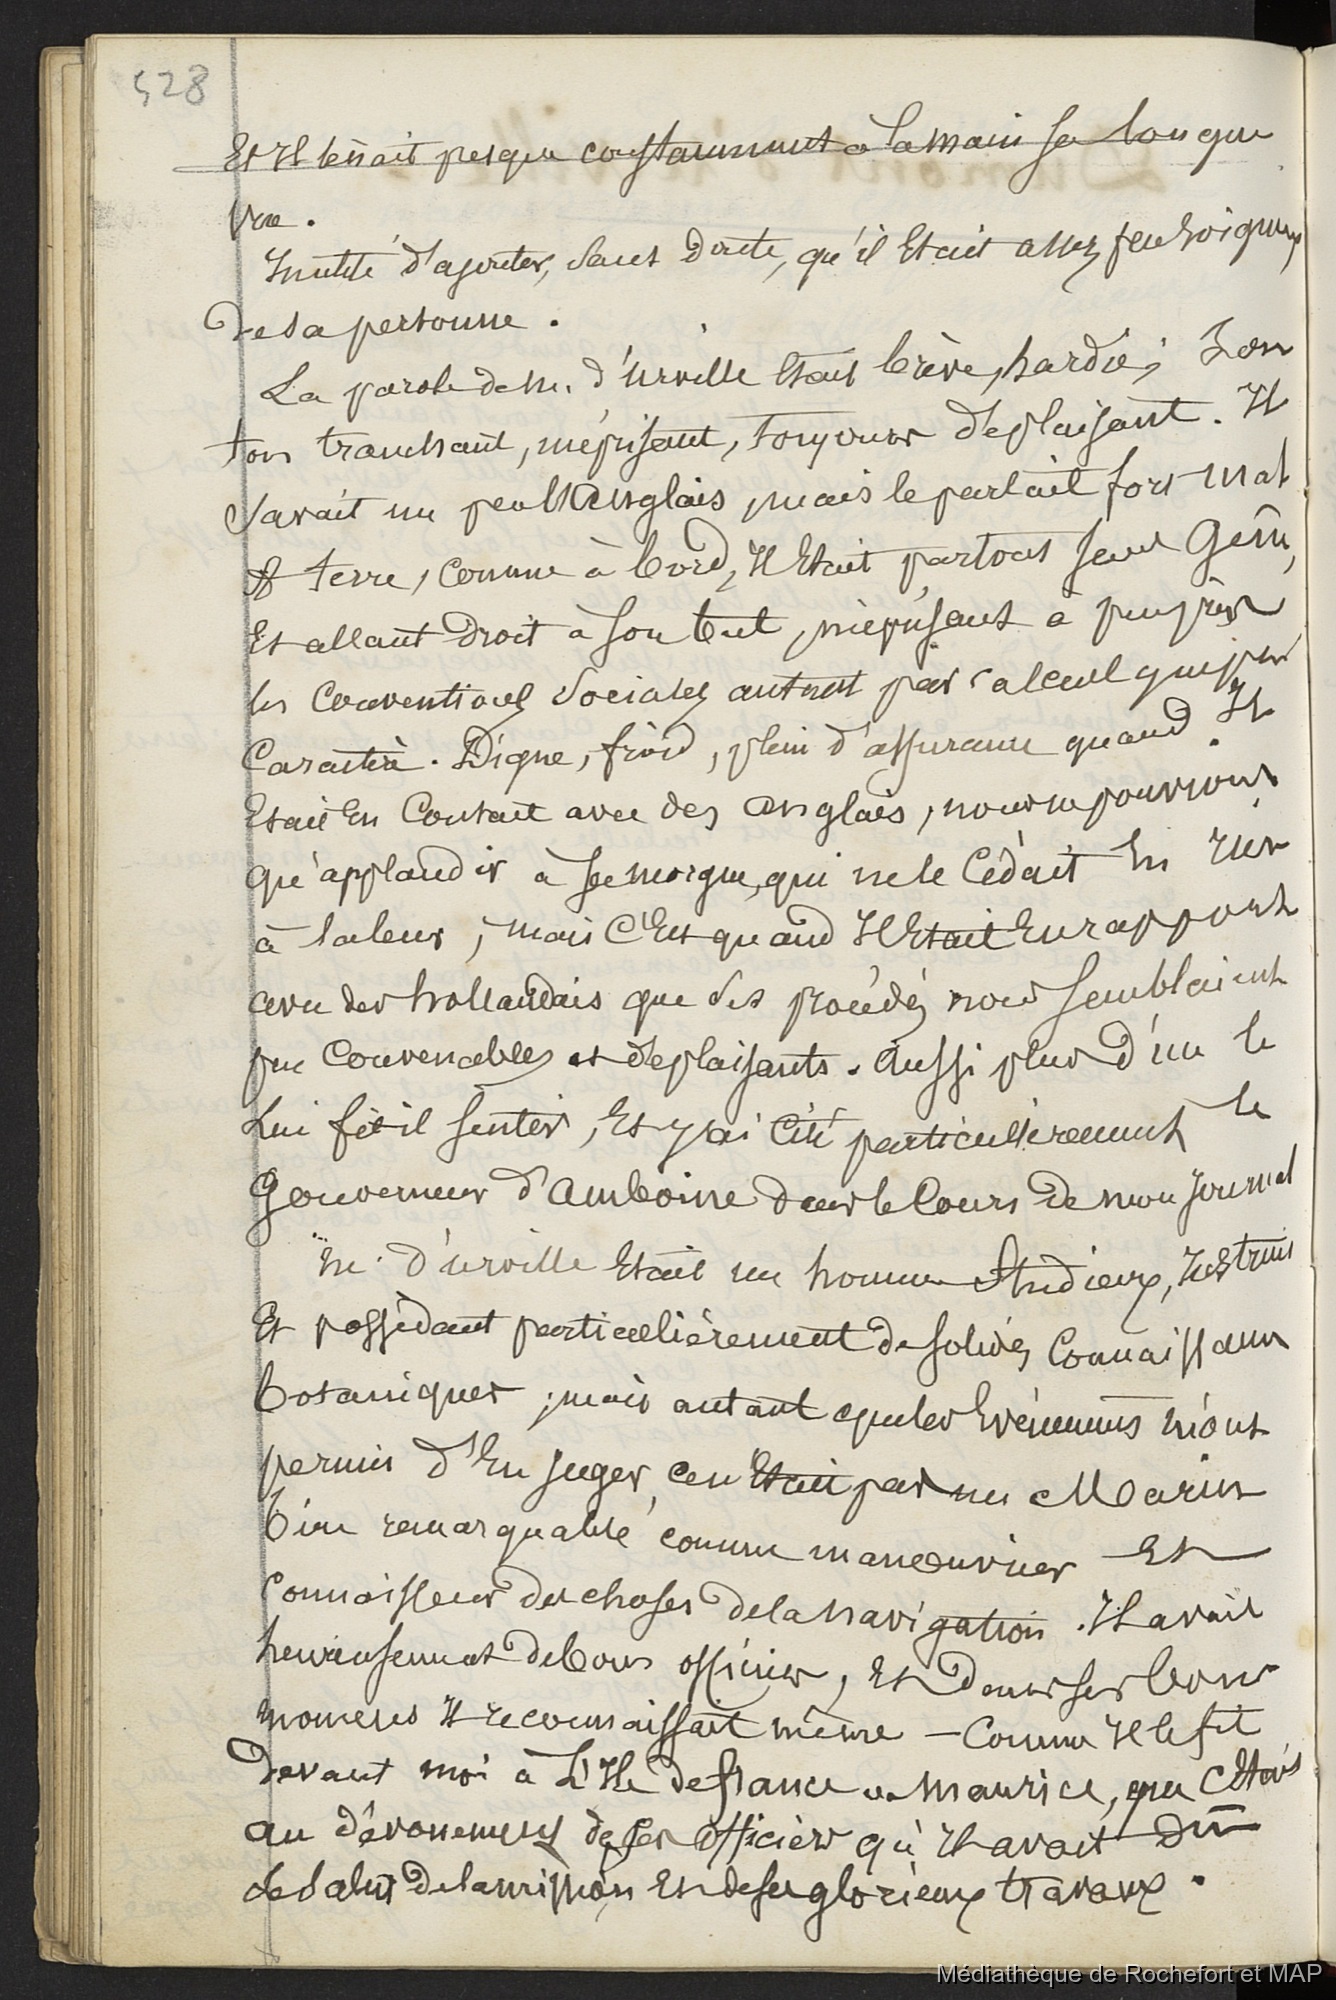 528
Et Il tenait presque constamment à la main sa longue
vue.
Inutile d'ajouter, sans doute, qu'il Etait assez peu soigneux
de sa personne.
La parole de M. d'urville Etait brève, hardie; Son
ton tranchant, méprisant, toujours déplaisant. Il
Savait un peu l'Anglais, mais le parlait fort mal
A terre, comme à bord, Il Etait partout sans Gêne,
Et allant droit à son but, méprisant à peu près
les Conventions Sociales autant par calcul que par
Caractère. Digne, froid, plein d'assurance quand Il
Etait En Contact avec des anglais, nous ne pouvions
qu'applaudir à sa morgue, qui ne le Cédait En rien
à la leur; mais C'Est quand Il Etait En rapport
avec des hollandais que ses procédés nous semblaient
peu Convenables et déplaisants. Aussi plus d'un le
Lui fit-il sentir, Et j'ai Cité particulièrement le
Gouverneur d'Amboine dans le Cours de mon Journal
M. d'urville Etait un homme Studieux, Instruit
Et possédant particulièrement de solides Connaissances
botaniques; mais autant que les Evénements m'ont
permis d'En juger, ce n'Etait pas un Marin
bien remarquable comme manoeuvrier Et
Connaisseur des choses de la navigation. Il avait
heureusement de bons officiers, Et dans ses bons
moments Il reconnaissait même – Comme Il le fit
devant moi à L'Ile de france ou Maurice, que C'Etait
au dévouement de ses officiers qu'Il avait Dû
le Salut de la mission, Et de ses glorieux travaux.
Médiathèque de Rochefort et MAP